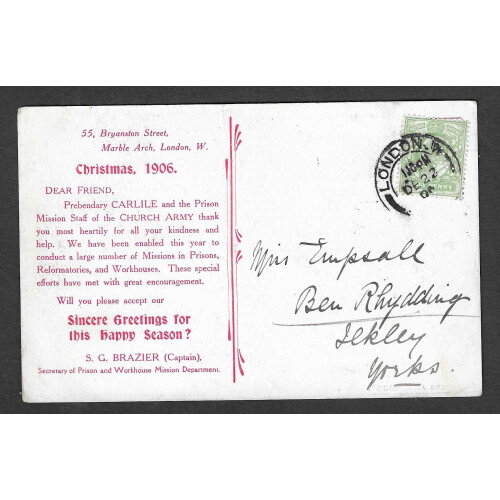 55, Bryanston Street,
Marble Arch, London, W.
Christmas, 1906.
DEAR FRIEND,
Prebendary CARLILE and the Prison
Mission Staff of the CHURCH ARMY thank
you most heartily for all your kindness and
help. We have been enabled this year to
conduct a large number of Missions in Prisons,
Reformatories, and Workhouses. These special
efforts have met with great encouragement.
Will you please accept our
Sincere Greetings for
this Happy Season?
S. G. BRAZIER (Captain),
Secretary of Prison and Workhouse Mission Department.
LONDON. W
DE 22
06
PENNY
Miss Empsall
Ben Rhydding
Ilkley
Yorks.